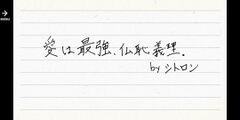 愛は最強、仏恥義理.
by シトロン
MENU